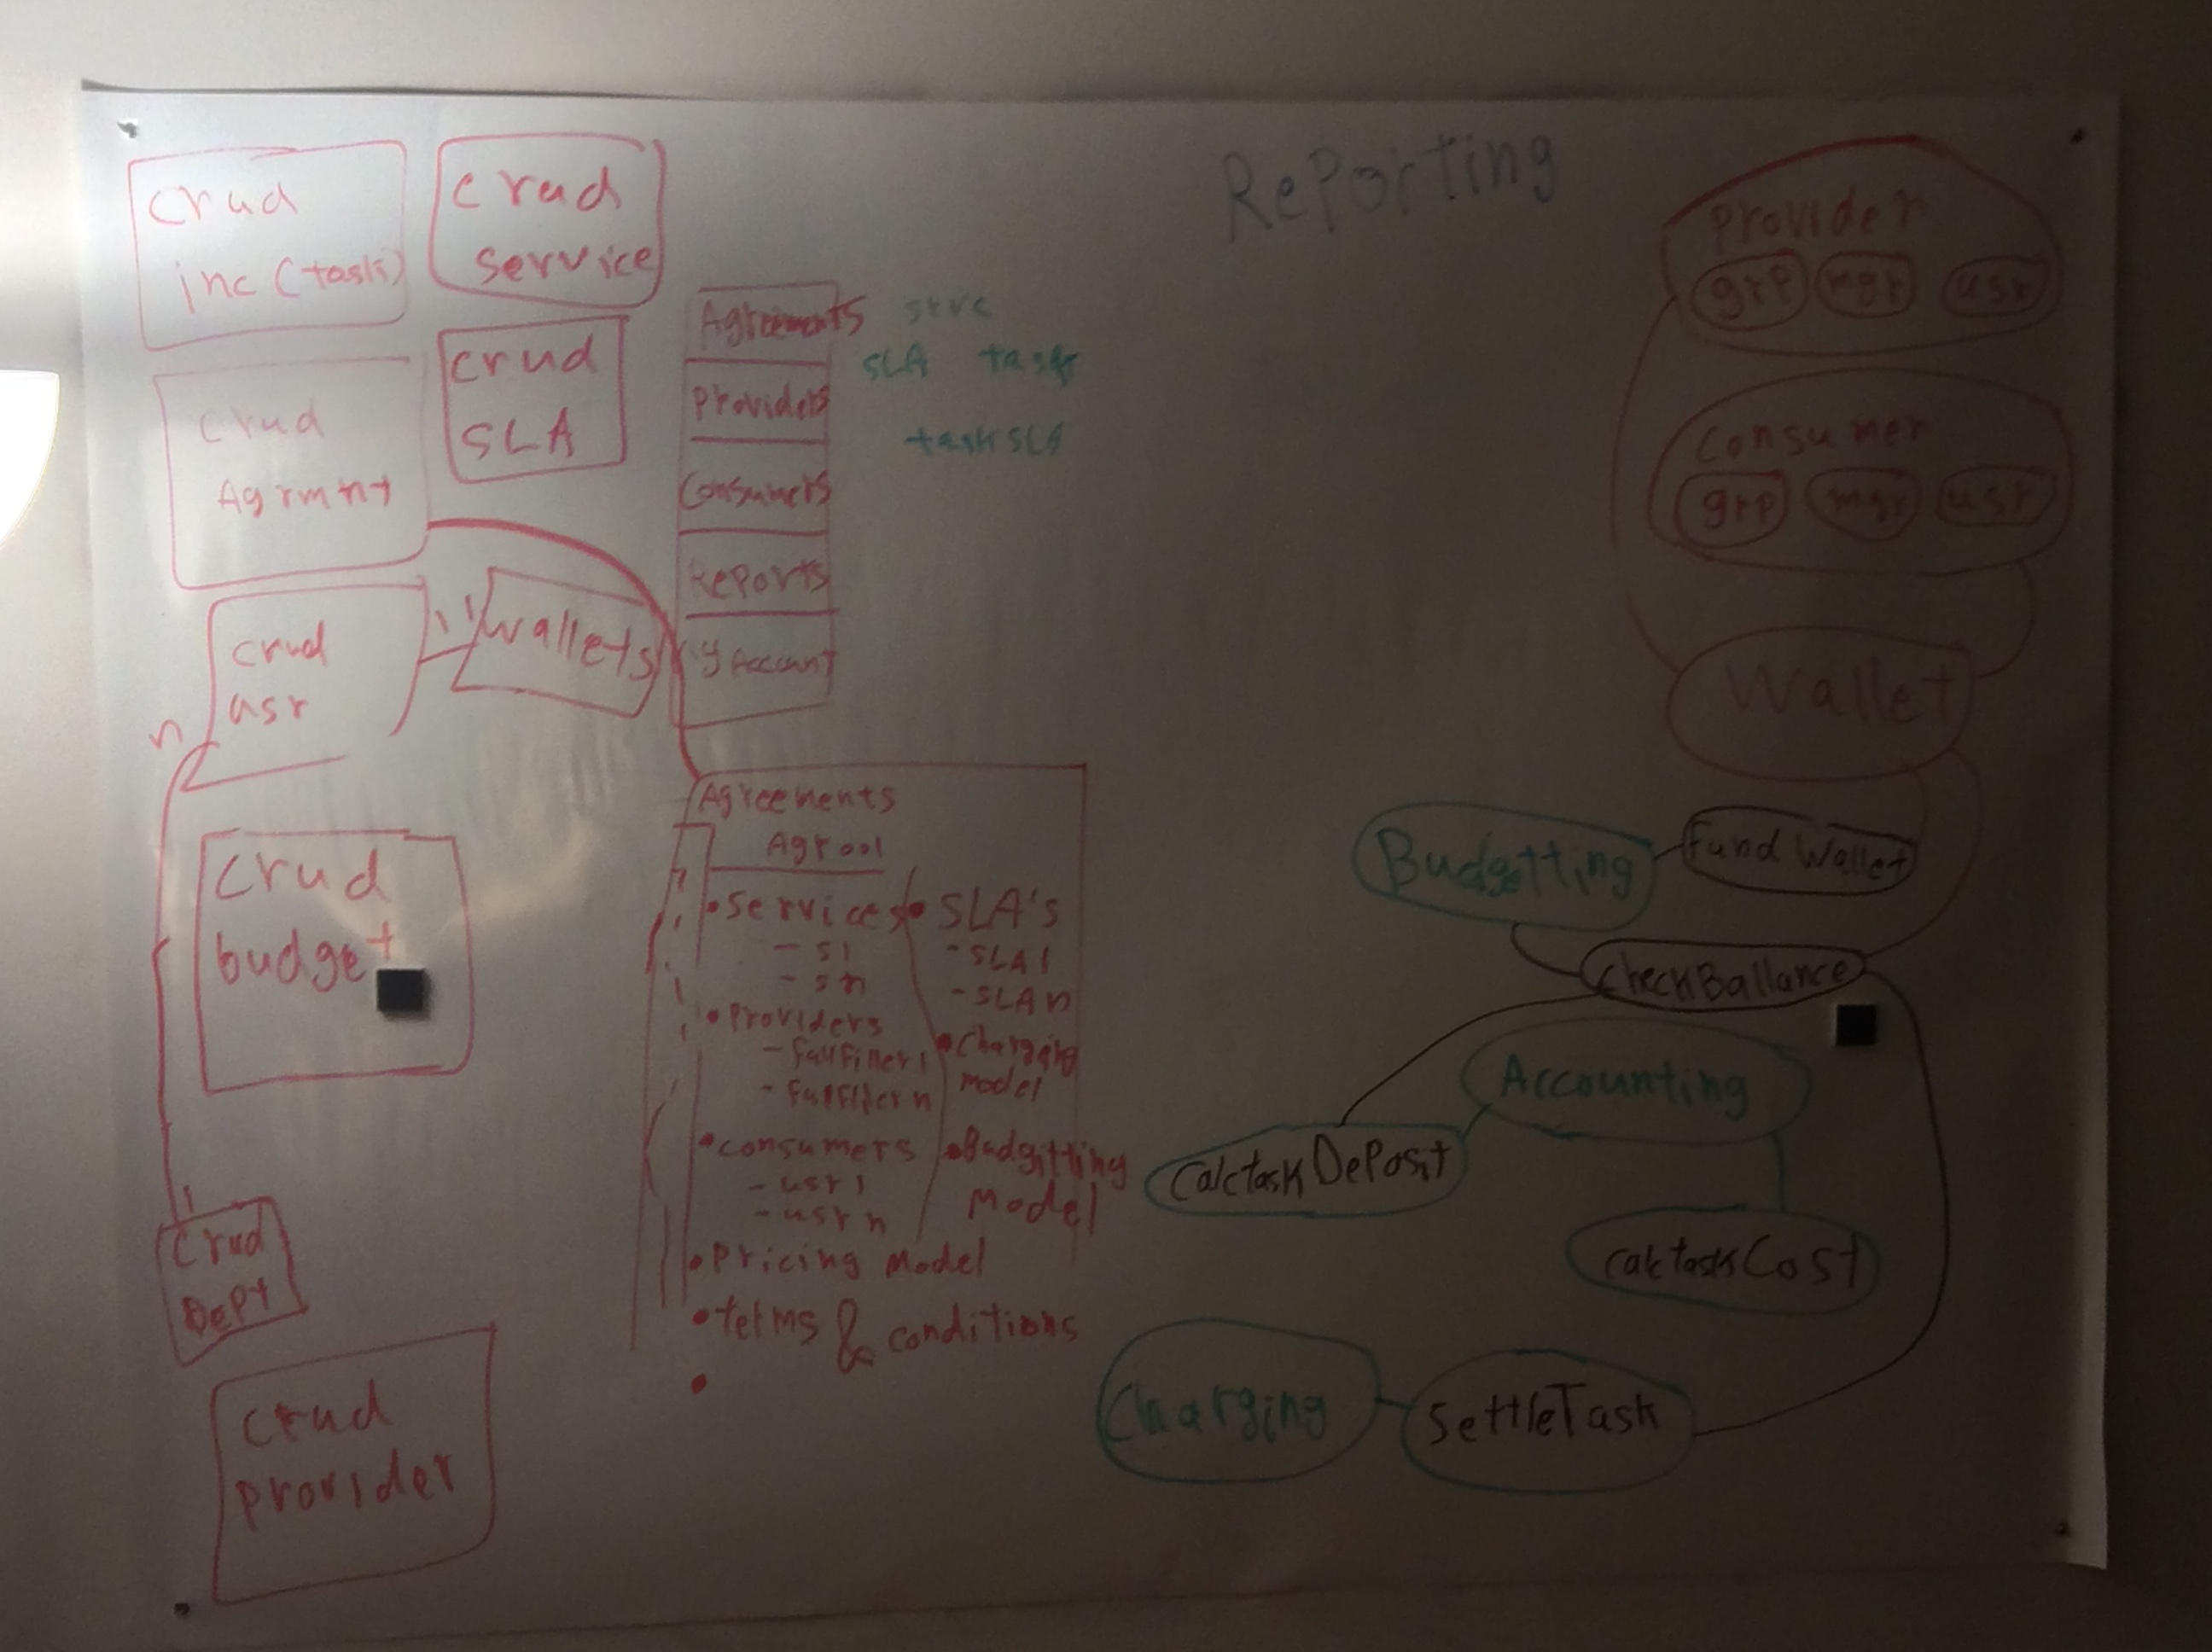 crud
inc (task)
crud
service
crud
Agrmnt
crud
SLA
crud
usr
Wallets
n
crud
budget
1
crud
Dept
crud
provider
Agreements
Providers
Consumers
Reports
y Account
srvc
SLA task
task SLA
Agreements
Agr001
• Services
- s1
- sn
• Providers
- fullfiller1
- fullfiller n
• consumers
- usr1
- usr n
• Pricing Model
• terms & conditions
•
• SLA's
- SLA1
- SLA n
• Charging
model
• Budgitting
Model
Reporting
Provider
grp mgr usr
Consumer
grp mgr usr
Wallet
Budgetting
Fund Wallet
CheckBallance
Accounting
CalctaskDeposit
CalctaskCost
Charging
SettleTask